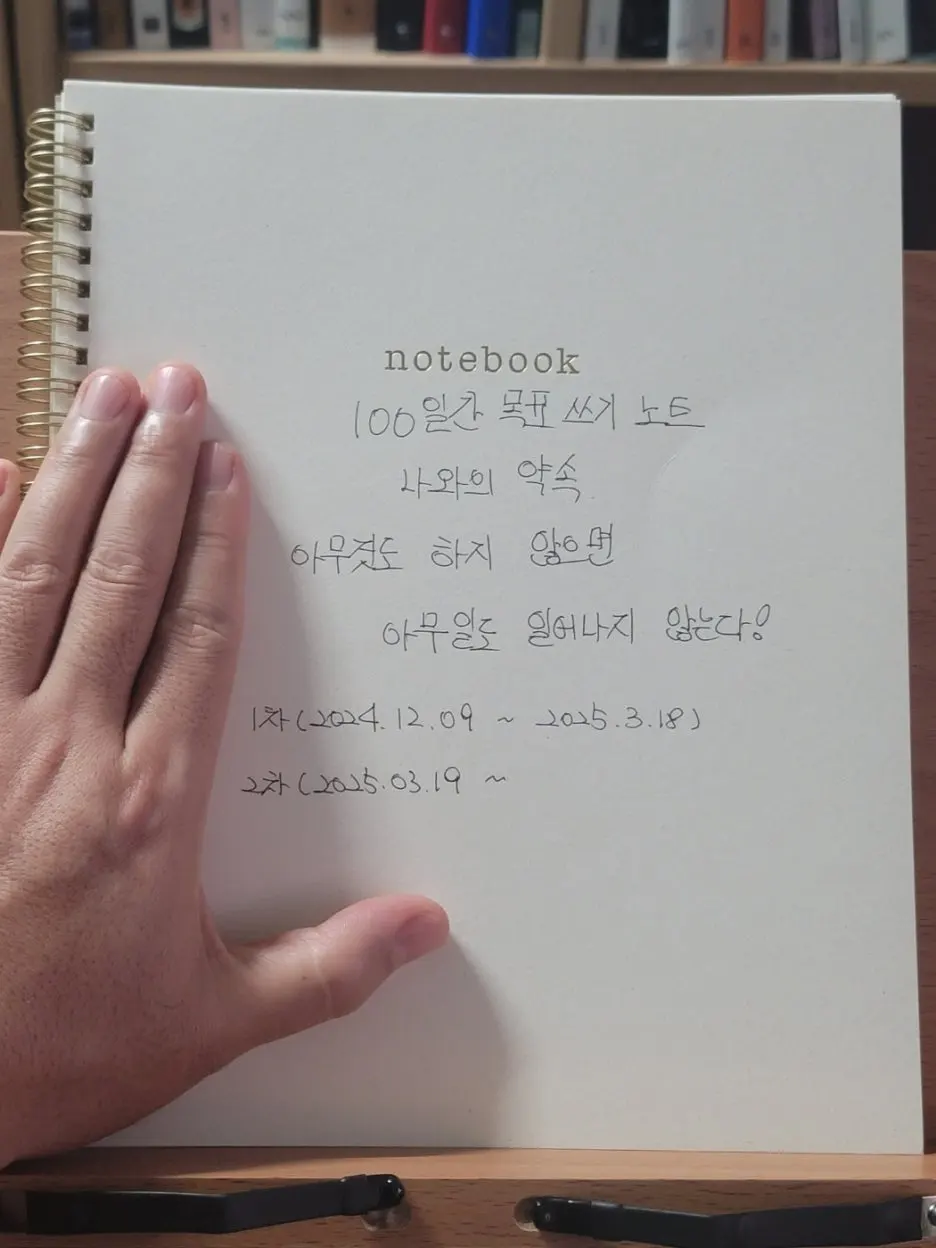 notebook
100일간 목표 쓰기 노트
나와의 약속
아무것도 하지 않으면
아무일도 일어나지 않는다!
1차(2024.12.09 ~ 2025.3.18)
2차(2025.03.19 ~